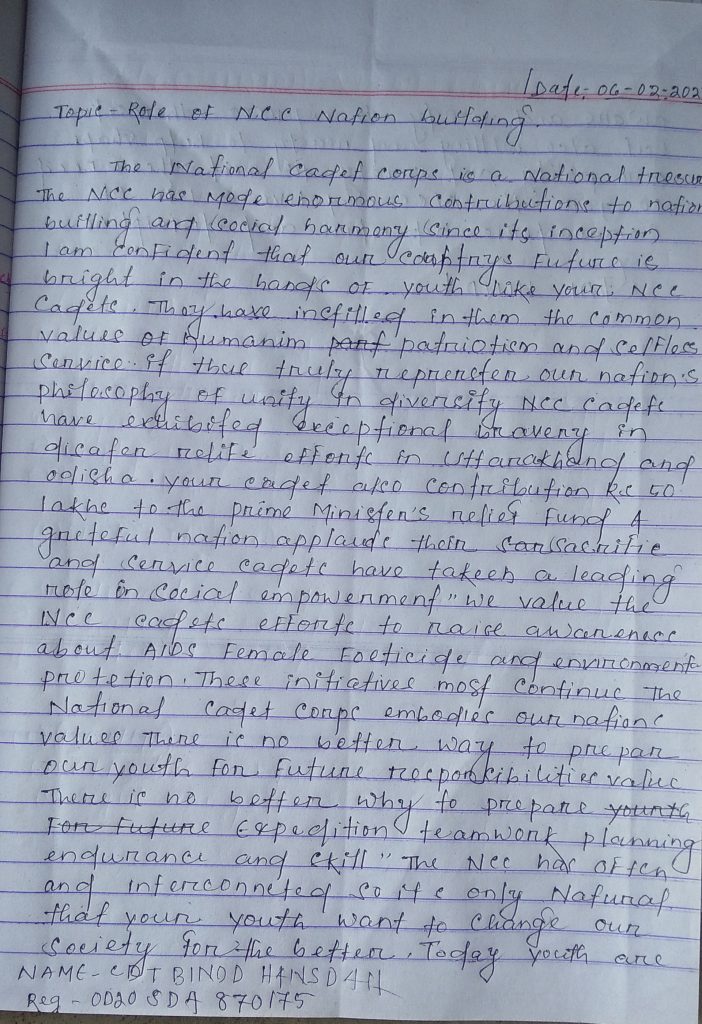 Date:- 06-02-202
Topic - Role of N.C.C Nation building.
The National Cadet corps is a National tresur
The NCC has Mode enormous contributions to nation
builling and social harmony since its inception
I am confident that our countrys Future is
bright in the hands of youth like your NCC
Cadets. They have instilled in them the common
values of Humanim part patriotism and selfless
service. if thue truly represten our nation's
philosophy of unity in diversity NCC cadets
have exhibited exceptional bravery in
disaster relife efforts in Uttarakhand and
odisha. your cadet also contribution Rs 50
lakhs to the prime Minister's relief Fund A
greteful nation applauds their sacrifie
and service cadets have takeen a leading
role in social empowerment " we value the
NCC cadets efforts to raise awareness
about AIDS Female Foeticide and environment
protetion. These initiatives most continue The
National Cadet Corps embodies our nations
values There is no better way to prepar
our youth For Future responsibilities value
There is no better why to prepare younth
For Future Expedition teamwork planning
endurance and skill" The NCC has often
and interconneted so its only Natural
that your youth want to change our
society for the better. Today youth are
NAME - CDT BINOD HANSDAH
Reg - OD20 SDA 870175